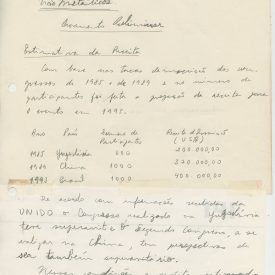 Não Metálicos
Orçamento Preliminar
Estimativa de Receita
Com base nas taxas de inscrição dos con-
gressos de 1985 e de 1989 e no número de
participantes foi feita a projeção de receita para
o evento em 1993.
Ano País Número de Participantes Receita de Inscrição (US$)
1985 Yugoslávia 500 200.000,00
1989 China 1000
1993 Brasil 1000 400.000,00
De acordo com informações recebidas da
UNIDO o Congresso realizado na Yugoslávia
teve superavit e o segundo Congresso, a se
realizar na China, tem perspectivas de
ser também superavitário.